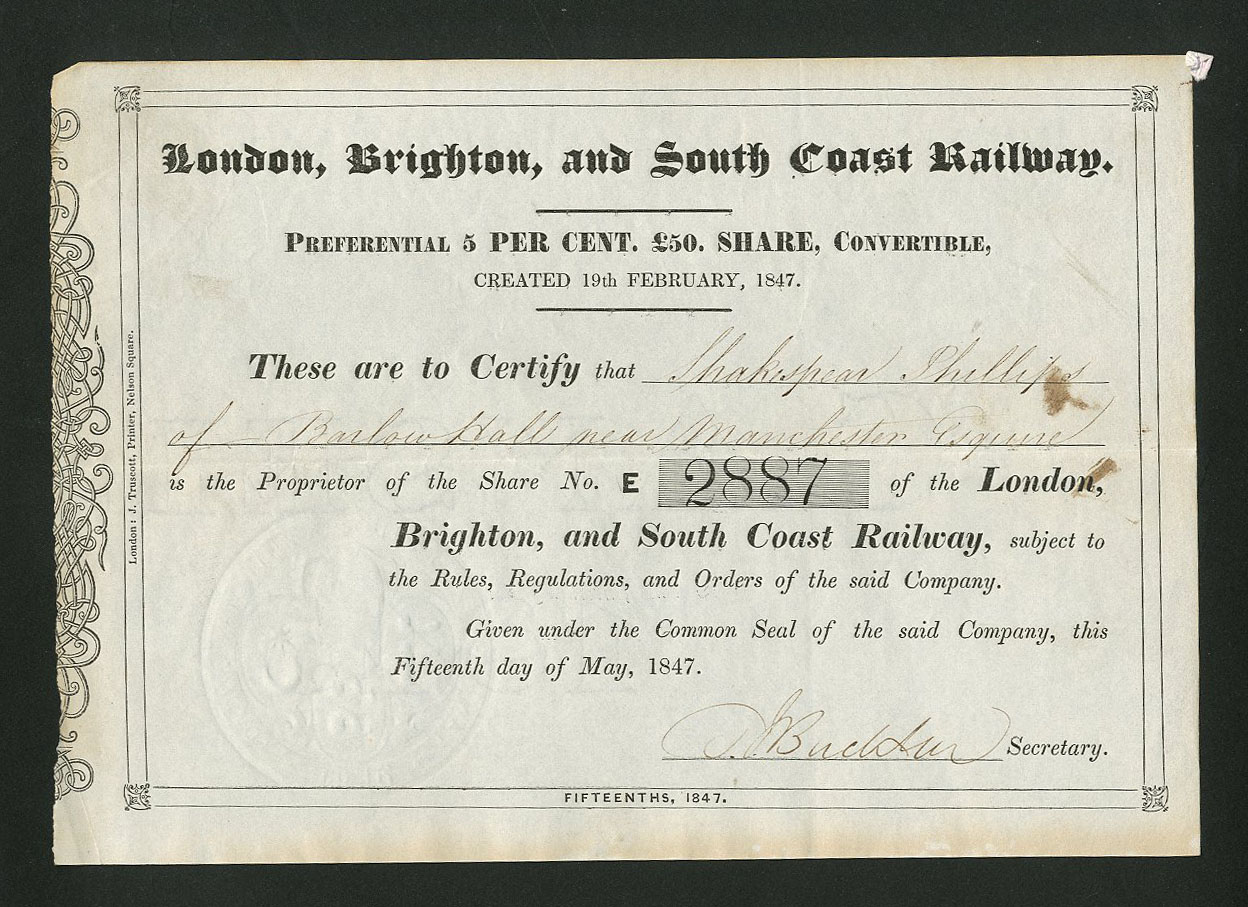 London, Brighton, and South Coast Railway.
PREFERENTIAL 5 PER CENT. £50. SHARE, CONVERTIBLE,
CREATED 19th FEBRUARY, 1847.
These are to Certify that Shakespear Phillips
of Barlow Hall near Manchester Esquire
is the Proprietor of the Share No. E 2887 of the London,
Brighton, and South Coast Railway, subject to
the Rules, Regulations, and Orders of the said Company.
Given under the Common Seal of the said Company, this
Fifteenth day of May, 1847.
Secretary.
FIFTEENTHS, 1847.
London: J. Truscott, Printer, Nelson Square.